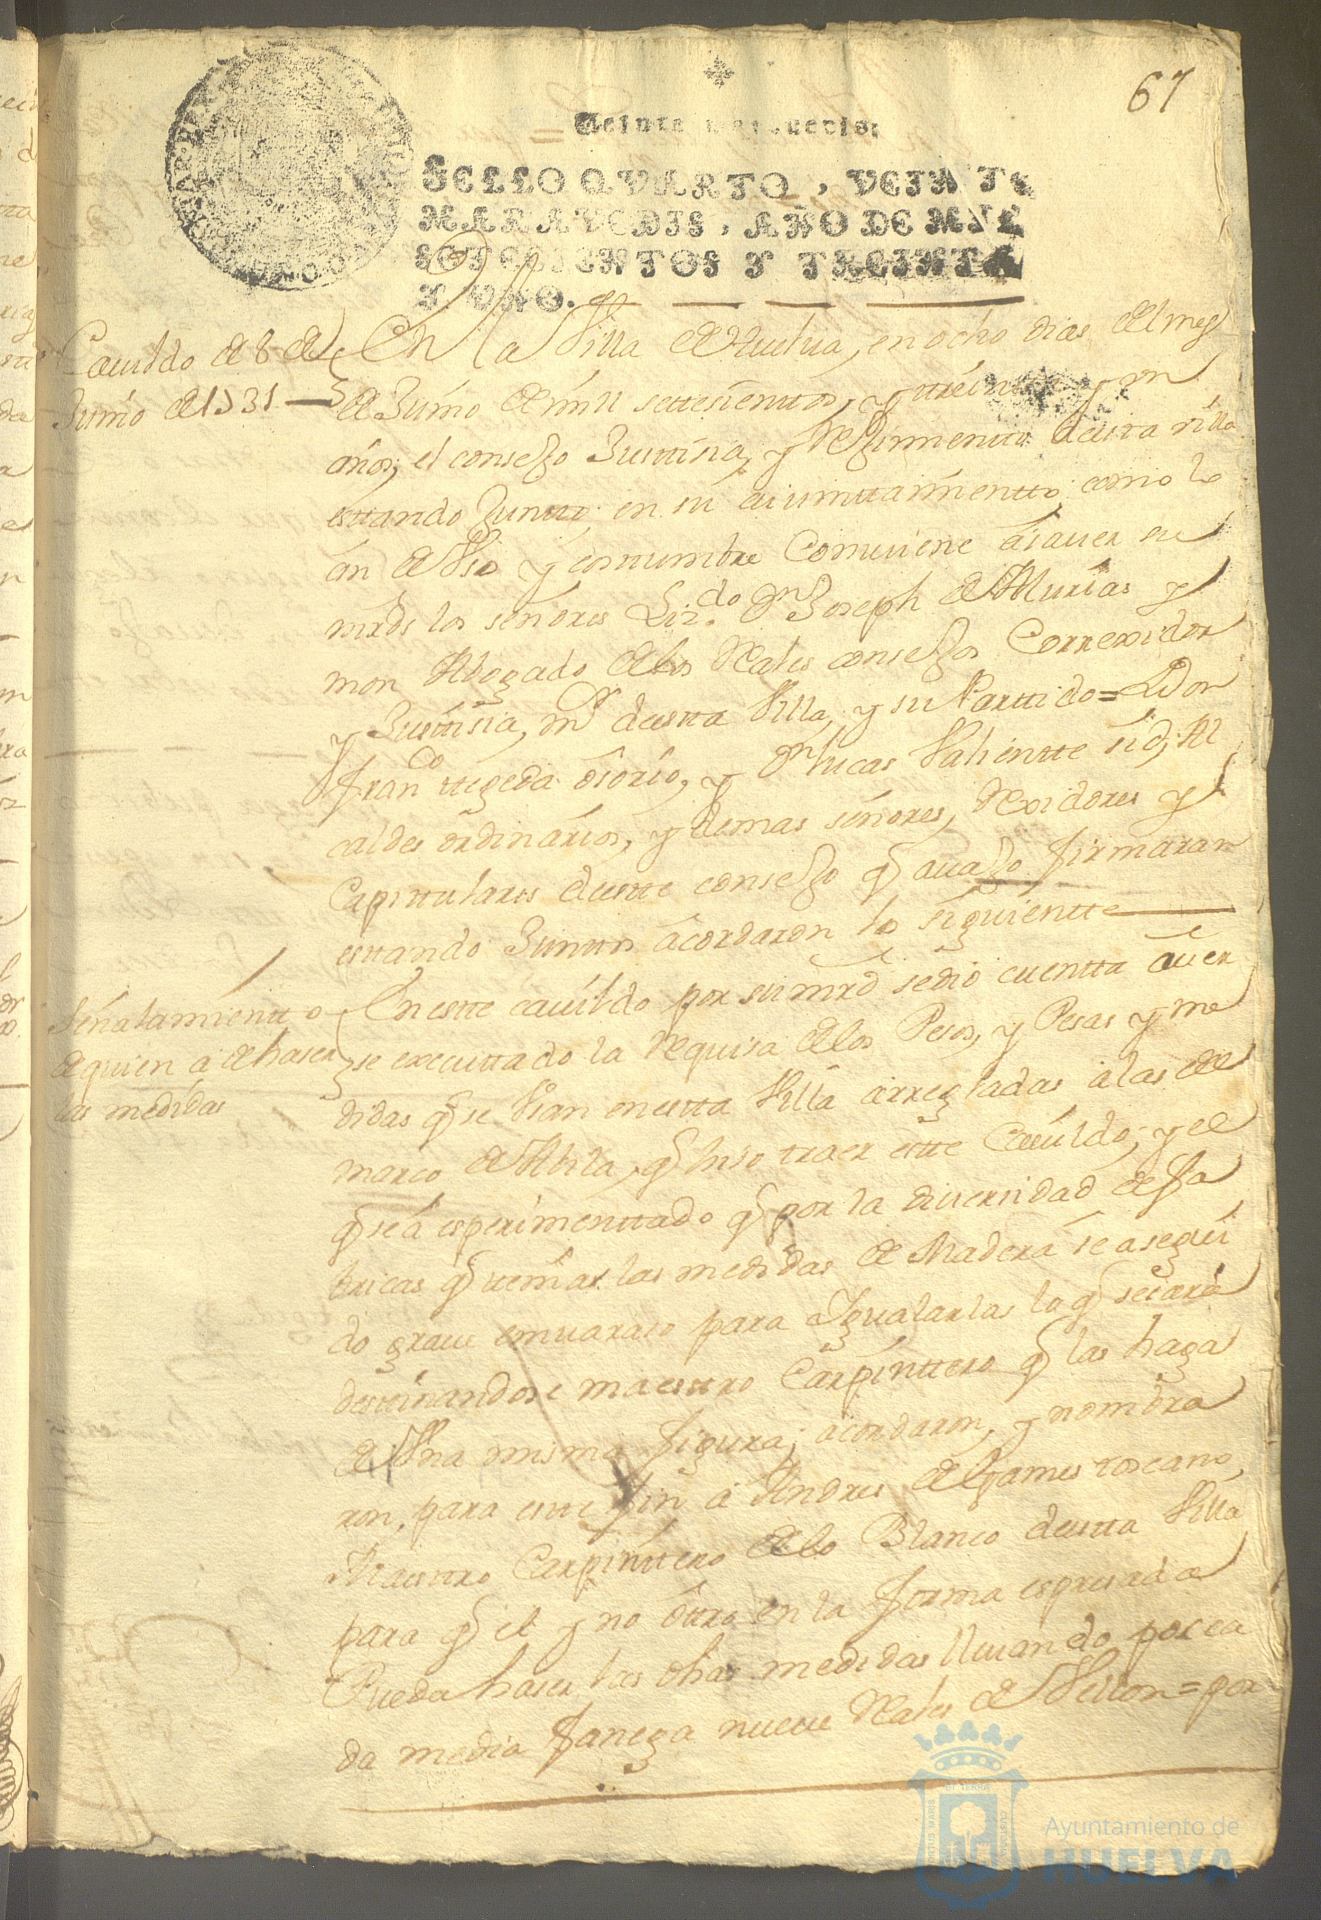 67
Veinte maravedis.
SELLO QVARTO, VEINTE
MARAVEDIS, AÑO DE MIL
SETECIENTOS Y TREINTA
Y UNO.
Cauildo de 8 de
Junio de 1731
En la Villa de Huelua, en ocho dias del mes
de Junio de mill settesienttos, y treinta y un
años, el consejo Justtisia, y Regimiento desta villa
esttando Juntto en su aiunttamientto como lo
an de Vso y costumbre Comuiene asauer su
mrds los señores Lizdo Dn Joseph de Murias y
mon Abogado de los Reales consejos Correxidor
y Justtisia mr. desta Villa, y su Parttido = Don
Franco ttegeda osorio, y Dn lucas Valientte sid, Al
caldes ordinarios, y demas señores, Rexidores y
Capittulares destte consejo q auajo firmaran
esttando Junttos acordaron lo siguientte
Señalamientto
de quien a de haser
las medidas
En este cauildo por su mrd se dio cuentta auer
se executtado la Requisa de los Pesos, y Pesas y me
didas q se Vsan en estta Villa arregladas a las del
marco de Abila, q hiso traer estte Cauildo, y el
q se a esperimenttado q por la diuersidad de fa
bricas q ttenias las medidas de Madera se a segui
do graue emuaraso para Igualarlas lo q sesara
desttinandose maesttro Carpinttero q las haga
de Vna misma figura; acordaron, y nombra
ron, para estte fin a Andres de Games toscano,
Maesttro Carpinttero de lo Blanco destta Villa
para q el y no ottro en la forma espresada
Pueda haser las dhas medidas lleuando por ca
da media fanega nueue Reales de Vellon = por
Ayuntamiento de
HUELVA